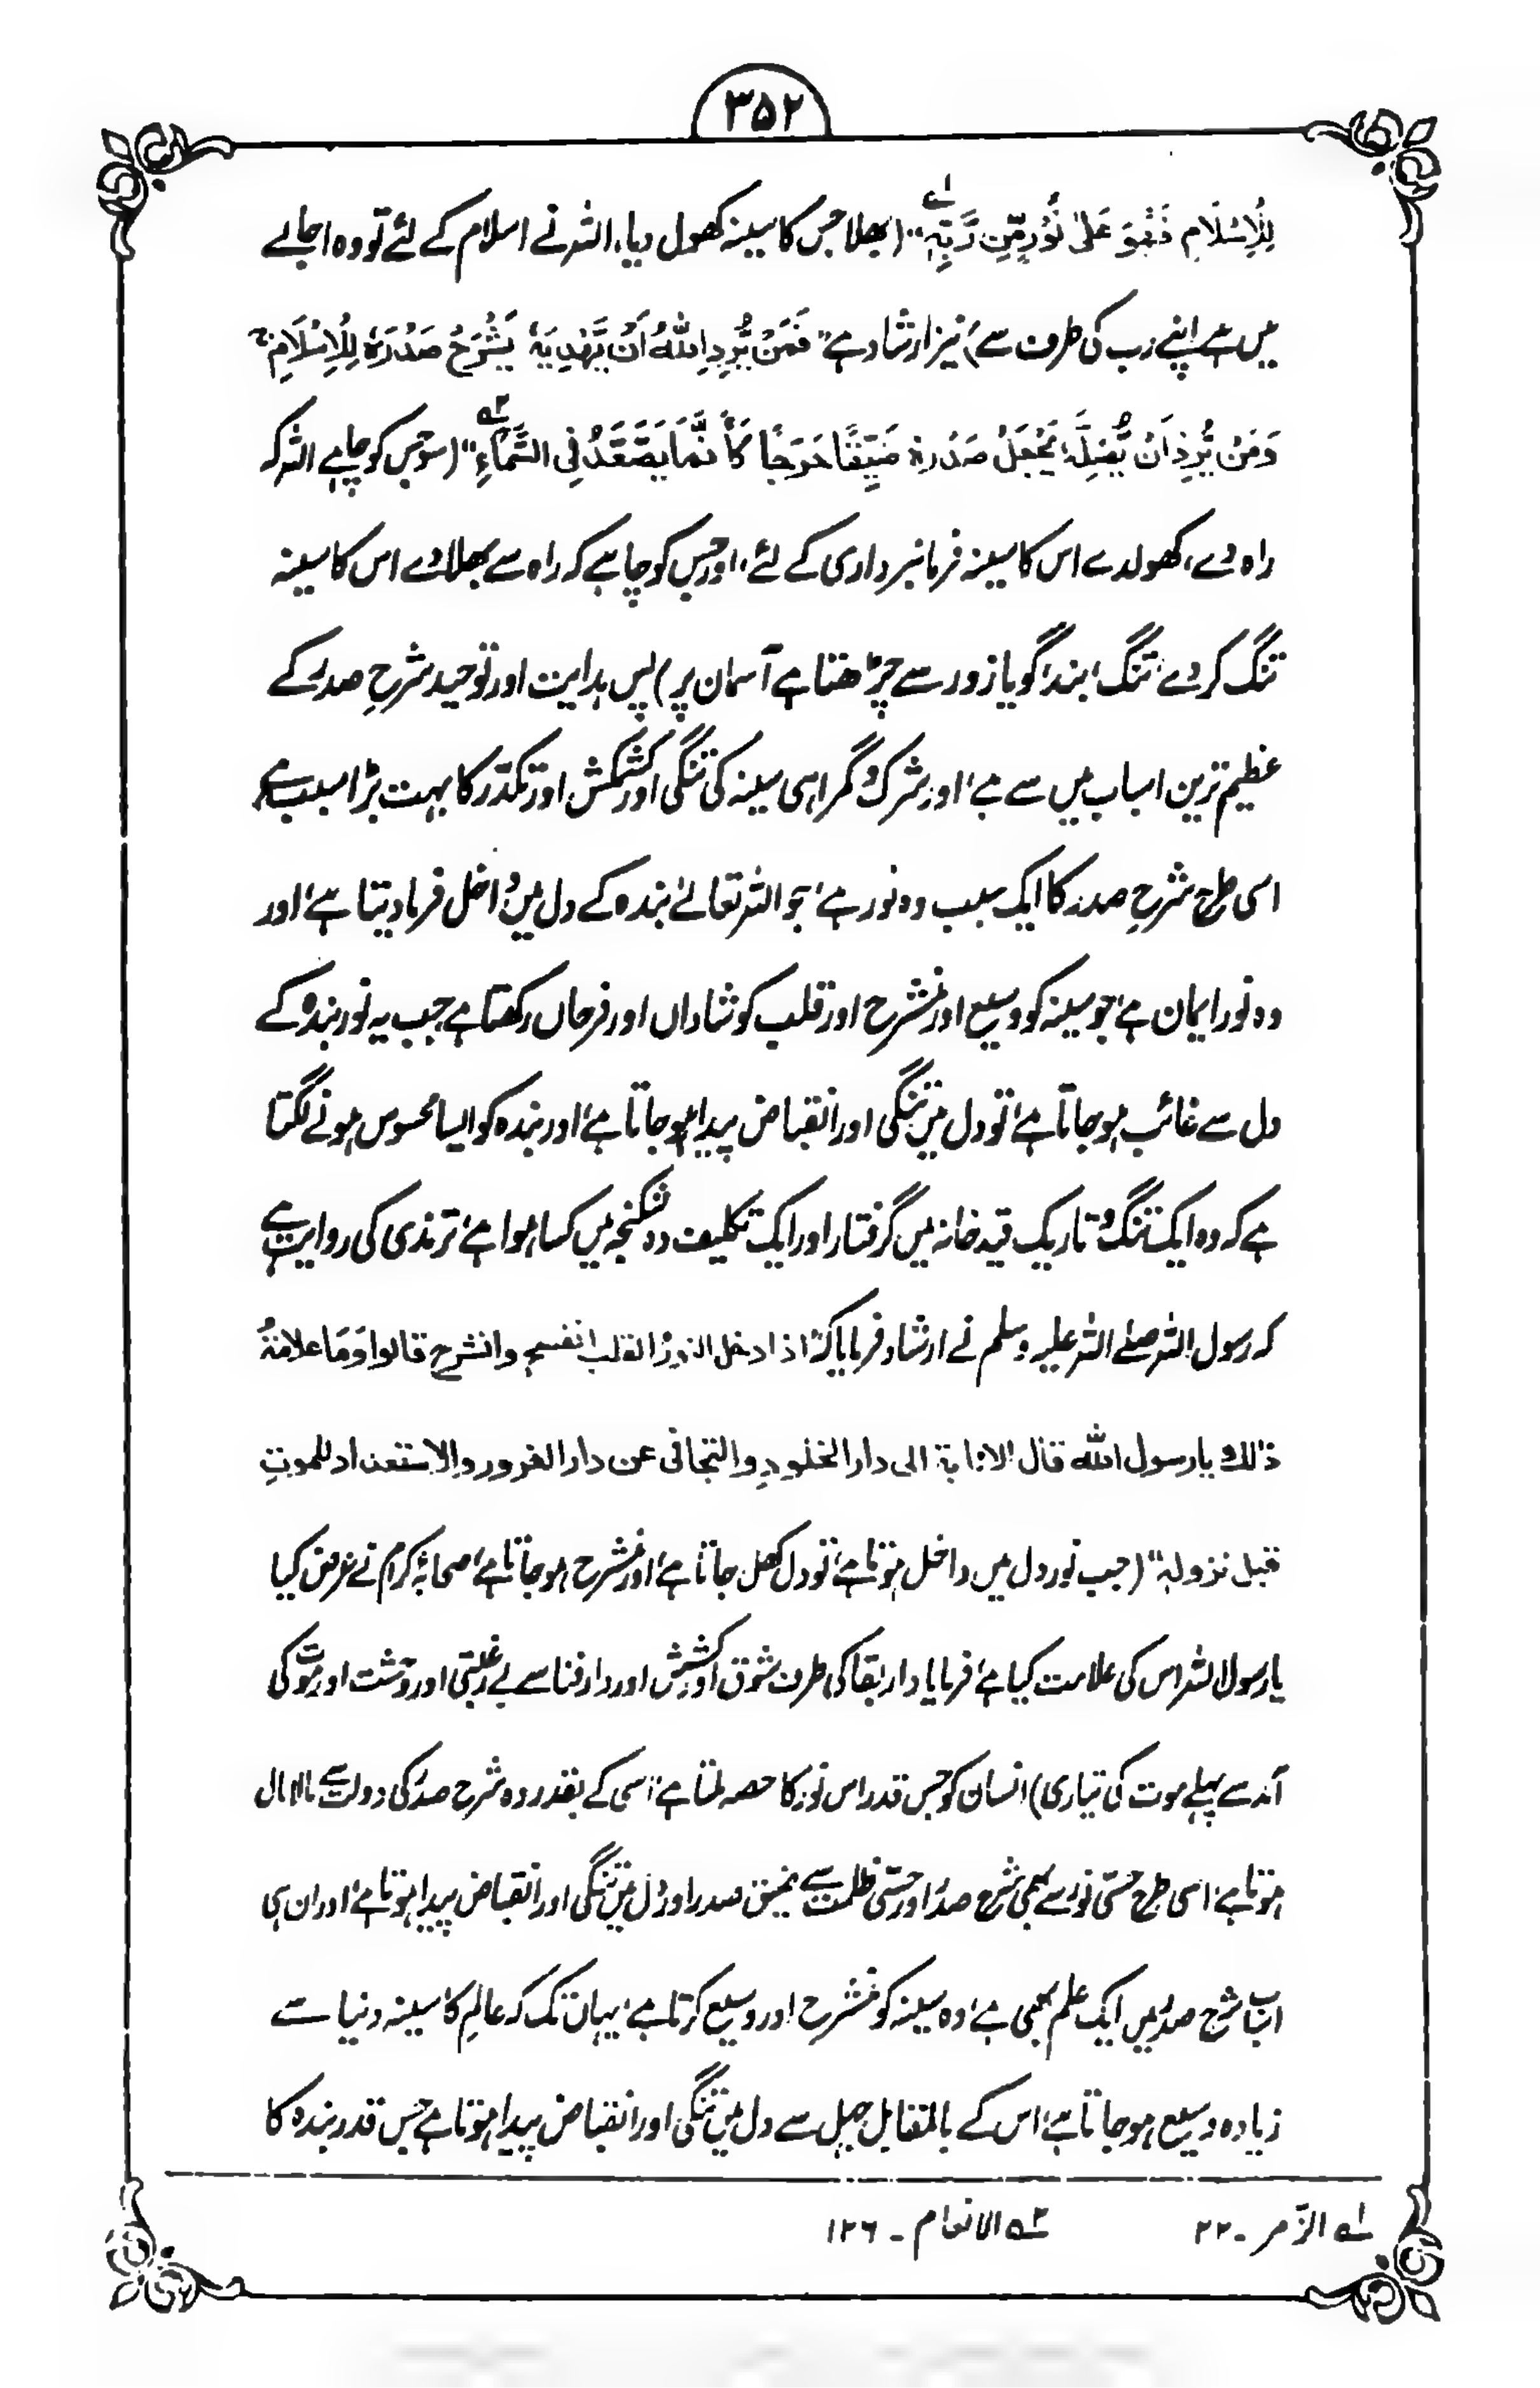 ۳۵۲
لِلْاِسْلَامِ فَهُوَ عَلٰی نُوْرٍ مِّنْ رَّبِّہٖ" ؎۱ (بھلا جس کا سینہ کھول دیا، اللہ نے اسلام کے لئے تو وہ اجالے
میں ہے اپنے رب کی طرف سے) نیز ارشاد ہے "فَمَنْ یُّرِدِ اللّٰہُ اَنْ یَّھْدِیَہٗ یَشْرَحْ صَدْرَہٗ لِلْاِسْلَامِ ج
وَمَنْ یُّرِدْ اَنْ یُّضِلَّہٗ یَجْعَلْ صَدْرَہٗ ضَیِّقًا حَرَجًا کَاَنَّمَا یَصَّعَّدُ فِی السَّمَآءِ" ؎۲ (سو جس کو چاہے اللہ کہ
راہ دے، کھولدے اس کا سینہ فرمانبرداری کے لئے، اور جس کو چاہے کہ راہ سے بھلادے اس کا سینہ
تنگ کردے، تنگ، بند، گویا زور سے چڑھتا ہے آسمان پر) پس ہدایت اور توحید شرحِ صدر کے
عظیم ترین اسباب میں سے ہے، اور شرک و گمراہی سینہ کی تنگی اور کشمکش اور تکدّر کا بہت بڑا سبب ہے
اسی طرح شرحِ صدر کا ایک سبب وہ نور ہے، جو اللہ تعالےٰ بندہ کے دل میں داخل فرما دیتا ہے، اور
وہ نور ایمان ہے، جو سینہ کو وسیع اور منشرح اور قلب کو شاداں اور فرحاں رکھتا ہے جب یہ نور بندہ کے
دل سے غائب ہو جاتا ہے، تو دل میں تنگی اور انقباض پیدا ہو جاتا ہے، اور بندہ کو ایسا محسوس ہونے لگتا
ہے کہ وہ ایک تنگ و تاریک قید خانہ میں گرفتار اور ایک تکلیف دہ شکنجہ میں کسا ہوا ہے، ترمذی کی روایت ہے
کہ رسول اللہ صلے اللہ علیہ وسلم نے ارشاد فرمایا کہ "اذا دخل النور القلب انفسح وانشرح قالوا وَمَا علامۃُ
ذٰلک یا رسول اللّٰہ قال الانابۃ الی دار الخلودِ والتجافی عن دار الغرور والاستعداد للموتِ
قبل نزولہٖ" (جب نور دل میں داخل ہوتا ہے، تو دل کھل جاتا ہے، اور منشرح ہو جاتا ہے، صحابۂ کرام نے عرض کیا
یا رسول اللہ اس کی علامت کیا ہے، فرمایا دار بقا کی طرف شوق و کشش اور دار فنا سے بے رغبتی اور وحشت اور موت کی
آمد سے پہلے موت کی تیاری) انسان کو جس قدر اس نور کا حصہ ملتا ہے، اسی کے بقدر وہ شرح صدر کی دولت سے مالامال
ہوتا ہے، اسی طرح حسّی نور سے بھی شرح صدر، اور حسّی ظلمت سے ضیق صدر اور دل میں تنگی اور انقباض پیدا ہوتا ہے، اور ان ہی
اسباب شرح صدر میں ایک علم بھی ہے، وہ سینہ کو منشرح اور وسیع کرتا ہے، یہاں تک کہ عالِم کا سینہ دنیا سے
زیادہ وسیع ہو جاتا ہے، اس کے بالمقابل جہل سے دل میں تنگی اور انقباض پیدا ہوتا ہے جس قدر بندہ کا
؎۱ الزّمر ۔ ۲۲ ؎۲ الانعام ۔ ۱۲۶